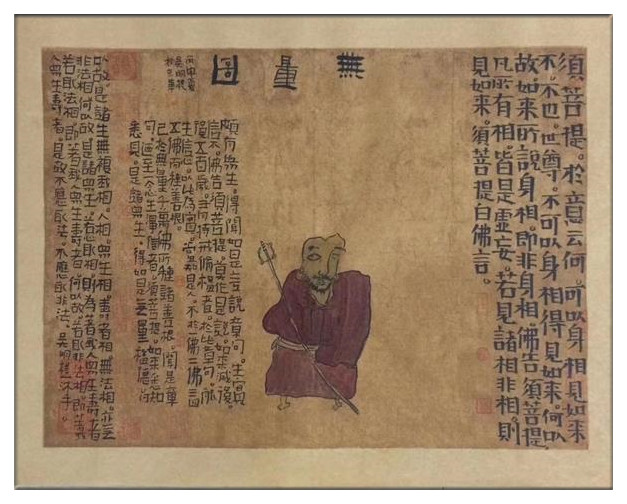 須菩提。於意云何。可以身相見如來
不。不也。世尊。不可以身相得見如來。何以
故。如來所說身相。即非身相。佛告須菩提。
凡所有相。皆是虛妄。若見諸相非相。則
見如來。須菩提白佛言。
無量圖
丙申夏
頗有眾生。得聞如是言說章句。生實
信不。佛告須菩提。莫作是說。如來滅後。
後五百歲。有持戒修福者。於此章句。能
生信心。以此為實。當知是人。不於一佛二佛三四
五佛而種善根。
已於無量千萬佛所種諸善根。聞是章
句。乃至一念生淨信者。須菩提。如來悉知
悉見。是諸眾生。得如是无量福德。何
以故。是諸眾生無復我相人相。眾生相。壽者相。無法相。亦無
非法相。何以故。是諸眾生。若心取相。則為著我人眾生壽者
若取法相。即著我人眾生壽者。何以故。若取非法相。即著我
人眾生壽者。是故不應取法。不應取非法。吳明